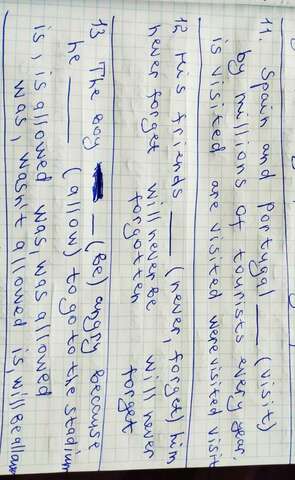 11. Spain and Portugal ___ (visit)
by millions of tourists every year.
is visited are visited were visited visit
12 His friends ___ (never, forget) him
never forget will never be will never
forgotten forget
13 The boy ___ (be) angry because
he ___ (allow) to go to the stadium
is, is allowed was, was allowed
was, wasnt allowed is, will be allow